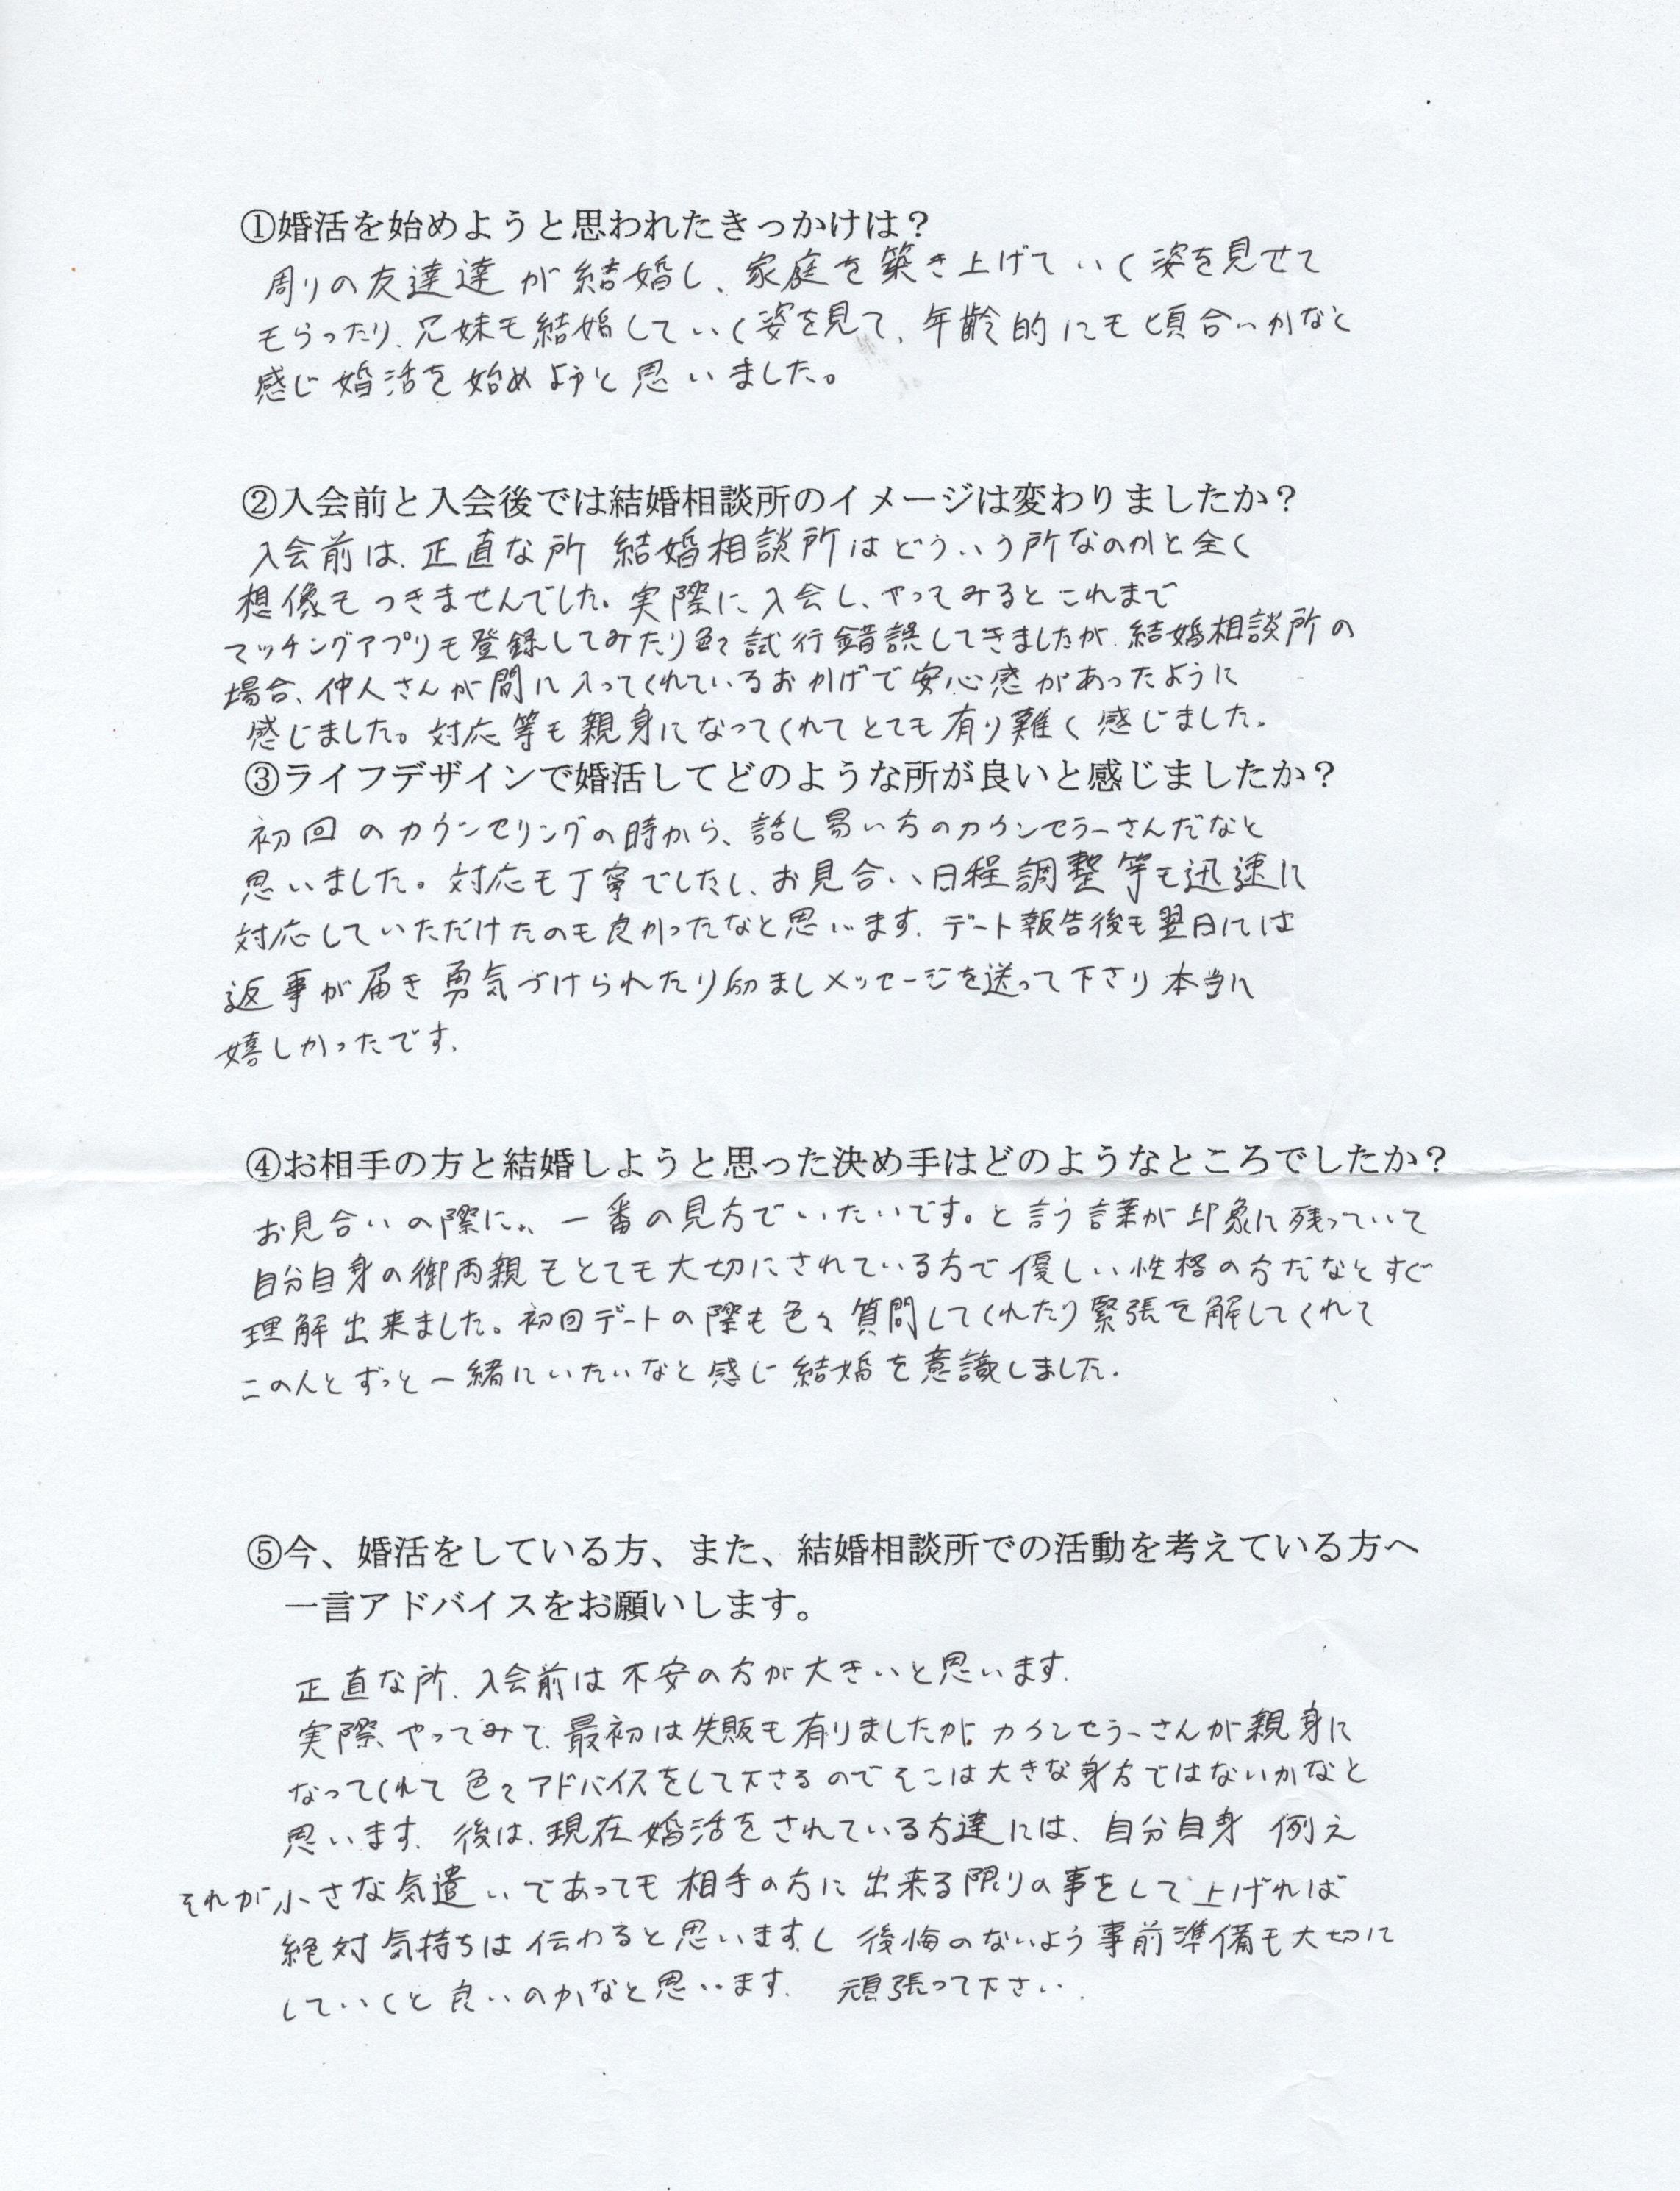 ①婚活を始めようと思われたきっかけは？
周りの友達達が結婚し、家庭を築き上げていく姿を見せて
もらったり、兄妹も結婚していく姿を見て、年齢的にも頃合いかなと
感じ婚活を始めようと思いました。
②入会前と入会後では結婚相談所のイメージは変わりましたか？
入会前は、正直な所 結婚相談所はどういう所なのかと全く
想像もつきませんでした。実際に入会し、やってみるとこれまで
マッチングアプリも登録してみたり色々試行錯誤してきましたが、結婚相談所の
場合、仲人さんが間に入ってくれているおかげで安心感があったように
感じました。対応等も親身になってくれてとても有り難く感じました。
③ライフデザインで婚活してどのような所が良いと感じましたか？
初回のカウンセリングの時から、話し易い方のカウンセラーさんだなと
思いました。対応も丁寧でしたし、お見合い、日程調整等も迅速に
対応していただけたのも良かったなと思います。デート報告後も翌日には
返事が届き勇気づけられたり励ましメッセージを送って下さり本当に
嬉しかったです。
④お相手の方と結婚しようと思った決め手はどのようなところでしたか？
お見合いの際に、一番の見方でいたいです。と言う言葉が印象に残っていて
自分自身の御両親もとても大切にされている方で優しい性格の方だなとすぐ
理解出来ました。初回デートの際も色々質問してくれたり緊張を解してくれて
この人とずっと一緒にいたいなと感じ結婚を意識しました。
⑤今、婚活をしている方、また、結婚相談所での活動を考えている方へ
一言アドバイスをお願いします。
正直な所、入会前は不安の方が大きいと思います。
実際、やってみて、最初は失敗も有りましたが、カウンセラーさんが親身に
なってくれて色々アドバイスをして下さるのでそこは大きな身方ではないかなと
思います。後は、現在婚活をされている方達には、自分自身 例え
それが小さな気遣いであっても相手の方に出来る限りの事をして上げれば
絶対気持ちは伝わると思いますし後悔のないよう事前準備も大切に
していくと良いのかなと思います。頑張って下さい。